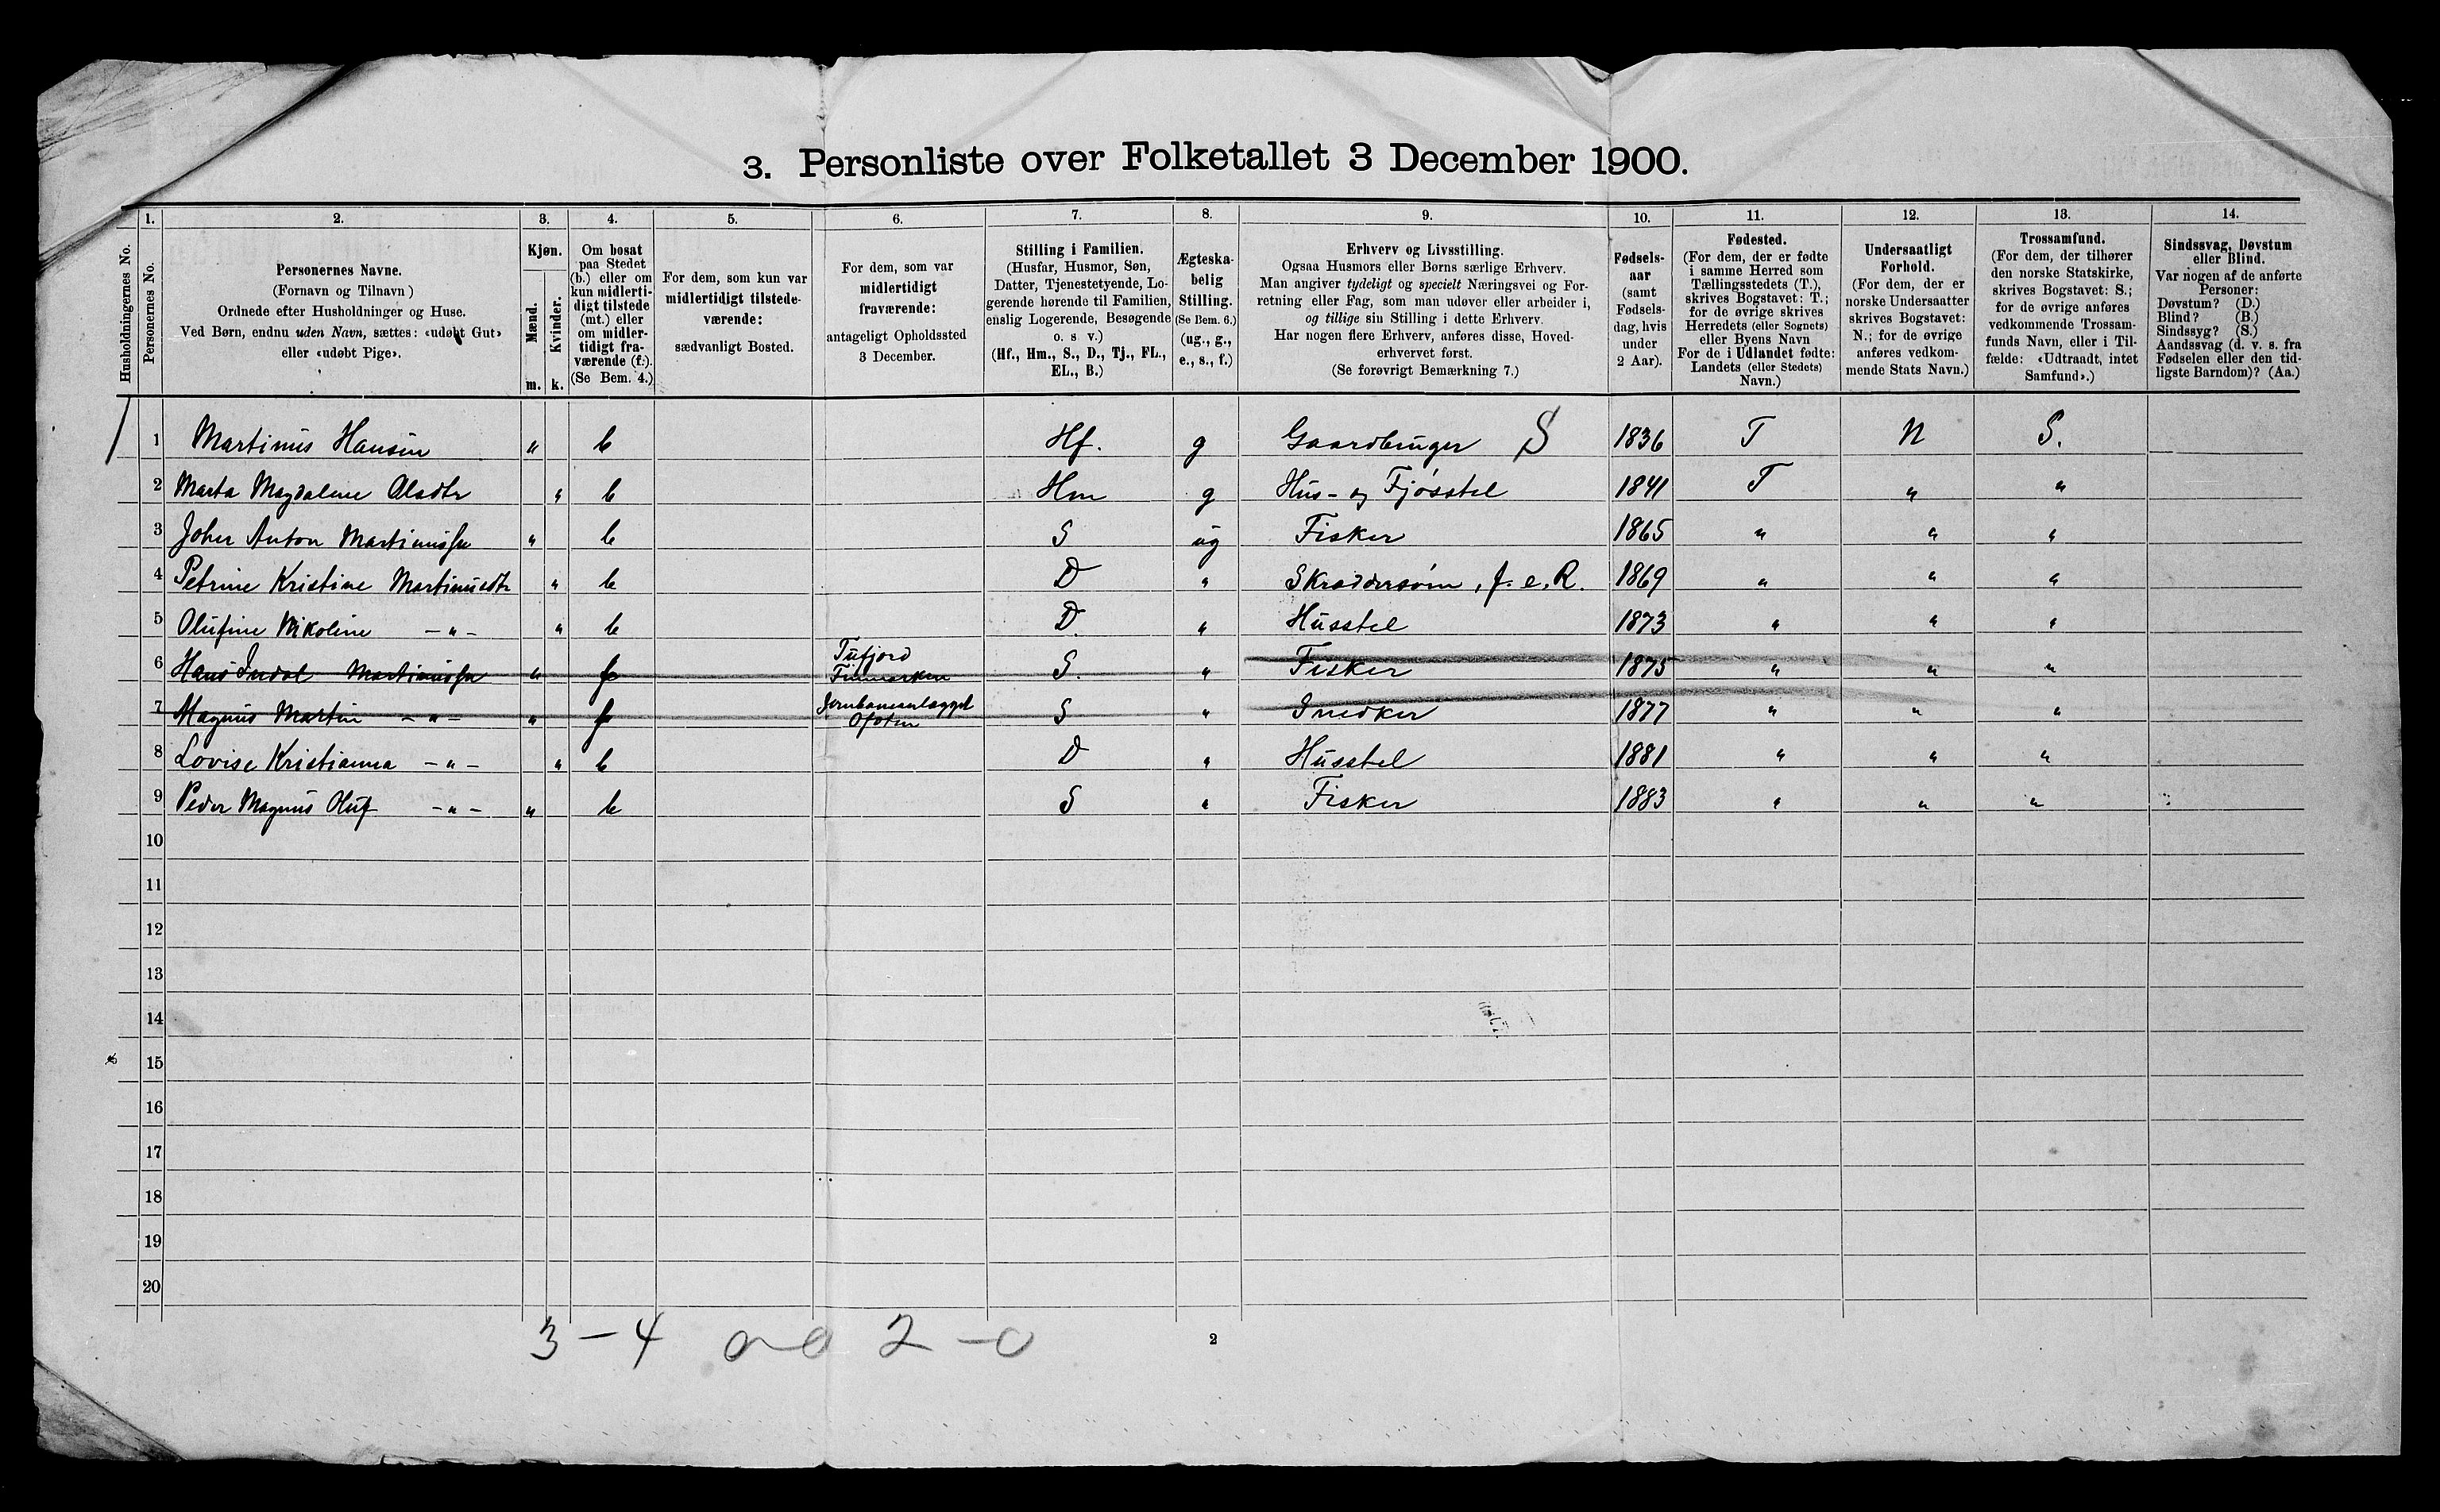 3. Personliste over Folketallet 3 December 1900.
1. 2. 3. 4. 5. 6. 7. 8. 9. 10. 11. 12. 13. 14.
Husholdningernes No.
Personernes No.
Personernes Navne.
(Fornavn og Tilnavn)
Ordnede efter Husholdninger og Huse.
Ved Børn, endnu uden Navn, sættes: «udøbt Gut»
eller «udøbt Pige».
Kjøn.
Mænd.
Kvinder.
m. k.
Om bosat
paa Stedet
(b.) eller om
kun midlerti-
digt tilstede
(mt.) eller
om midler-
tidigt fra-
værende (f.).
(Se Bem. 4.)
For dem, som kun var
midlertidigt tilstede-
værende:
sædvanligt Bosted.
For dem, som var
midlertidigt
fraværende:
antageligt Opholdssted
3 December.
Stilling i Familien.
(Husfar, Husmor, Søn,
Datter, Tjenestetyende, Lo-
gerende hørende til Familien,
enslig Logerende, Besøgende
o. s. v.)
(Hf., Hm., S., D., Tj., FL.,
EL., B.)
Ægteska-
belig
Stilling.
(Se Bem. 6.)
(ug., g.,
e., s., f.)
Erhverv og Livsstilling.
Ogsaa Husmors eller Børns særlige Erhverv.
Man angiver tydeligt og specielt Næringsvei og For-
retning eller Fag, som man udøver eller arbeider i,
og tillige sin Stilling i dette Erhverv.
Har nogen flere Erhverv, anføres disse, Hoved-
erhvervet først.
(Se forøvrigt Bemærkning 7.)
Fødsels-
aar
(samt
Fødsels-
dag, hvis
under
2 Aar).
Fødested.
(For dem, der er fødte
i samme Herred som
Tællingsstedets (T.),
skrives Bogstavet: T.;
for de øvrige skrives
Herredets (eller Sognets)
eller Byens Navn
For de i Udlandet fødte:
Landets (eller Stedets)
Navn.)
Undersaatligt
Forhold.
(For dem, der er
norske Undersaatter
skrives Bogstavet:
N.; for de øvrige
anføres vedkom-
mende Stats Navn.)
Trossamfund.
(For dem, der tilhører
den norske Statskirke,
skrives Bogstavet: S.;
for de øvrige anføres
vedkommende Trossam-
funds Navn, eller i Til-
fælde: «Udtraadt, intet
Samfund».)
Sindssvag, Døvstum
eller Blind.
Var nogen af de anførte
Personer:
Døvstum? (D.)
Blind? (B.)
Sindssyg? (S.)
Aandssvag (d. v. s. fra
Fødselen eller den tid-
ligste Barndom)? (Aa.)
1 Martinus Hansen " b Hf. g Gaardbruger S 1836 T N S.
2 Marta Magdalene Olsdtr " b Hm g Hus- og Fjøsstel 1841 T " "
3 Johan Anton Martinussen " b S ug Fisker 1865 " " "
4 Petrine Kristine Martinusdtr " b D " Skræddersøm, f. e. R. 1869 " " "
5 Olufine Nikoline -"- " b D. " Husstel 1873 " " "
6 Hans Martinussen " f Tufjord
Finmarken S. " Fisker 1875 " " "
7 Magnus Martin -"- " f Jernbaneanlægget
Ofoten S " Snedker 1877 " " "
8 Lovise Kristianna -"- " b D " Husstel 1881 " " "
9 Peder Magnus Oluf -"- " b S " Fisker 1883 " " "
10
11
12
13
14
15
16
17
18
19
20
3 - 4 0-0 2 - 0
2